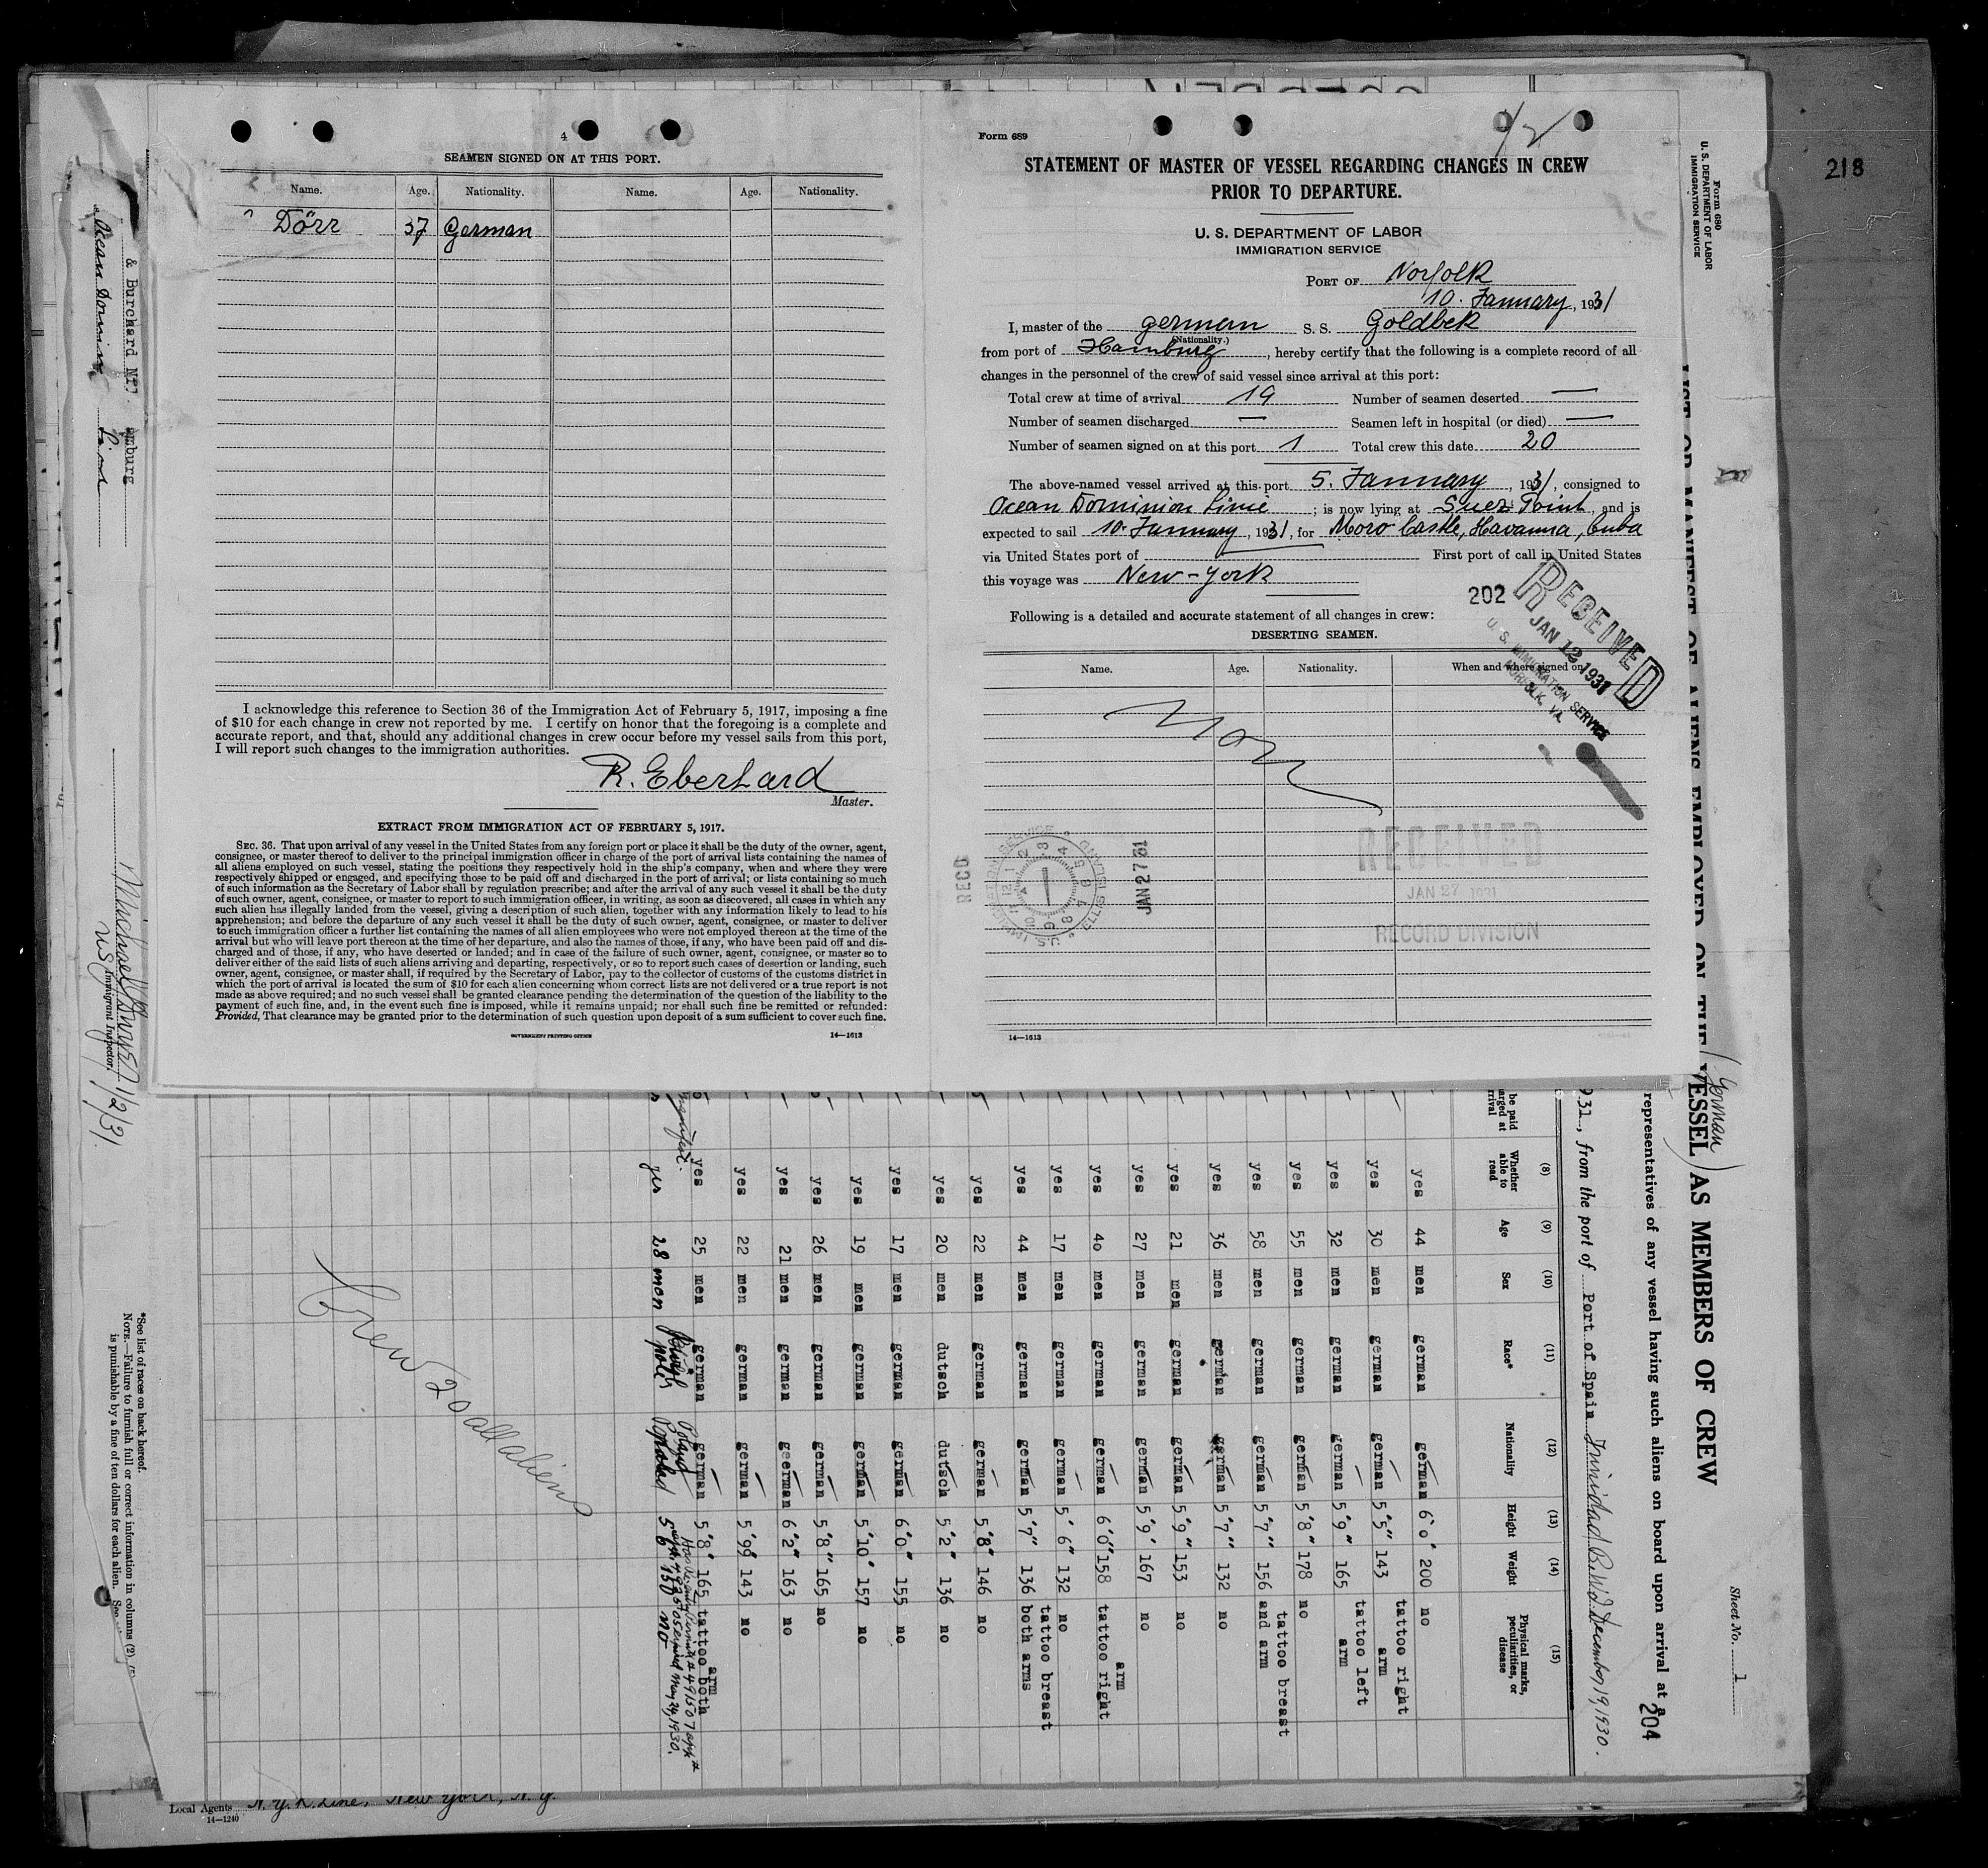 218
4
SEAMEN SIGNED ON AT THIS PORT.
Name. Age. Nationality. Name. Age. Nationality.
Dörr 37 German
I acknowledge this reference to Section 36 of the Immigration Act of February 5, 1917, imposing a fine
of $10 for each change in crew not reported by me. I certify on honor that the foregoing is a complete and
accurate report, and that, should any additional changes in crew occur before my vessel sails from this port,
I will report such changes to the immigration authorities.
R. Eberhard
Master.
EXTRACT FROM IMMIGRATION ACT OF FEBRUARY 5, 1917.
SEC. 36. That upon arrival of any vessel in the United States from any foreign port or place it shall be the duty of the owner, agent,
consignee, or master thereof to deliver to the principal immigration officer in charge of the port of arrival lists containing the names of
all aliens employed on such vessel, stating the positions they respectively hold in the ship's company, when and where they were
respectively shipped or engaged, and specifying those to be paid off and discharged in the port of arrival; or lists containing so much
of such information as the Secretary of Labor shall by regulation prescribe; and after the arrival of any such vessel it shall be the duty
of such owner, agent, consignee, or master to report to such immigration officer, in writing, as soon as discovered, all cases in which any
such alien has illegally landed from the vessel, giving a description of such alien, together with any information likely to lead to his
apprehension; and before the departure of any such vessel it shall be the duty of such owner, agent, consignee, or master to deliver
to such immigration officer a further list containing the names of all alien employees who were not employed thereon at the time of the
arrival but who will leave port thereon at the time of her departure, and also the names of those, if any, who have been paid off and dis-
charged and of those, if any, who have deserted or landed; and in case of the failure of such owner, agent, consignee, or master so to
deliver either of the said lists of such aliens arriving and departing, respectively, or so to report such cases of desertion or landing, such
owner, agent, consignee, or master shall, if required by the Secretary of Labor, pay to the collector of customs of the customs district in
which the port of arrival is located the sum of $10 for each alien concerning whom correct lists are not delivered or a true report is not
made as above required; and no such vessel shall be granted clearance pending the determination of the question of the liability to the
payment of such fine, and, in the event such fine is imposed, while it remains unpaid; nor shall such fine be remitted or refunded:
Provided, That clearance may be granted prior to the determination of such question upon deposit of a sum sufficient to cover such fine.
GOVERNMENT PRINTING OFFICE 14—1613
Form 689
STATEMENT OF MASTER OF VESSEL REGARDING CHANGES IN CREW
PRIOR TO DEPARTURE.
U. S. DEPARTMENT OF LABOR
IMMIGRATION SERVICE
PORT OF Norfolk
10. January, 1931
I, master of the german S. S. Goldbek
(Nationality.)
from port of Hamburg, hereby certify that the following is a complete record of all
changes in the personnel of the crew of said vessel since arrival at this port:
Total crew at time of arrival 19 Number of seamen deserted —
Number of seamen discharged — Seamen left in hospital (or died) —
Number of seamen signed on at this port 1 Total crew this date 20
The above-named vessel arrived at this port 5. January, 1931, consigned to
Ocean Dominion Linie; is now lying at Suez Point, and is
expected to sail 10. January, 1931, for Moro Castle, Havanna, Cuba
via United States port of First port of call in United States
this voyage was New-York
Following is a detailed and accurate statement of all changes in crew:
DESERTING SEAMEN.
Name. Age. Nationality. When and where signed on.
202
RECEIVED
JAN 12 1931
U. S. IMMIGRATION SERVICE
NORFOLK, VA.
RECD
U.S. IMMIGRATION SERVICE ELLIS ISLAND
JAN 27 31
RECEIVED
JAN 27 1931
RECORD DIVISION
14—1613
Form 680
U. S. DEPARTMENT OF LABOR
IMMIGRATION SERVICE
LIST OR MANIFEST OF ALIENS EMPLOYED ON THE VESSEL AS MEMBERS OF CREW
German
Sheet No. 1
representatives of any vessel having such aliens on board upon arrival at a
204
931, from the port of Port of Spain Trinidad B.W.I. December 19 1930.
be paid
arged at
rrival
(8) Whether able to read (9) Age (10) Sex (11) Race* (12) Nationality (13) Height (14) Weight (15) Physical marks, peculiarities, or disease
yes 44 men german german 6' 0" 200 no
yes 30 men german german 5'5" 143 tattoo right arm
yes 32 men german german 5'9" 165 tattoo left arm
yes 55 men german german 5'8" 178 no
yes 58 men german german 5'7" 156 tattoo breast and arm
yes 36 men german german 5'7" 132 no
yes 21 men german german 5'9" 153 no
yes 27 men german german 5'9' 167 no
yes 40 men german german 6'0" 158 tattoo right arm
yes 17 men german german 5' 6" 132 no
yes 44 men german german 5'7" 136 tattoo breast both arms
yes 22 men german german 5'8" 146 no
yes 20 men dutsch dutsch 5'2" 136 no
yes 17 men german german 6'0" 155 no
yes 19 men german german 5'10" 157 no
yes 26 men german german 5'8" 165 no
yes 21 men german geerman 6'2" 163 no
yes 22 men german german 5'99 143 no
yes 25 men german german 5'8" 165 tattoo both arm
yes 28 men Polish Poland 5 6 150 no
May 24, 1930.
Crew 20 all aliens
& Burchard Nfl. amburg
Ocean Dominion Line
Immigrant Inspector.
1/2/31.
*See list of races on back hereof.
NOTE.—Failure to furnish full or correct information in columns (2),
is punishable by a fine of ten dollars for each alien. See
Local Agents N.Y.K. Line, New York, N.Y.
14—1240